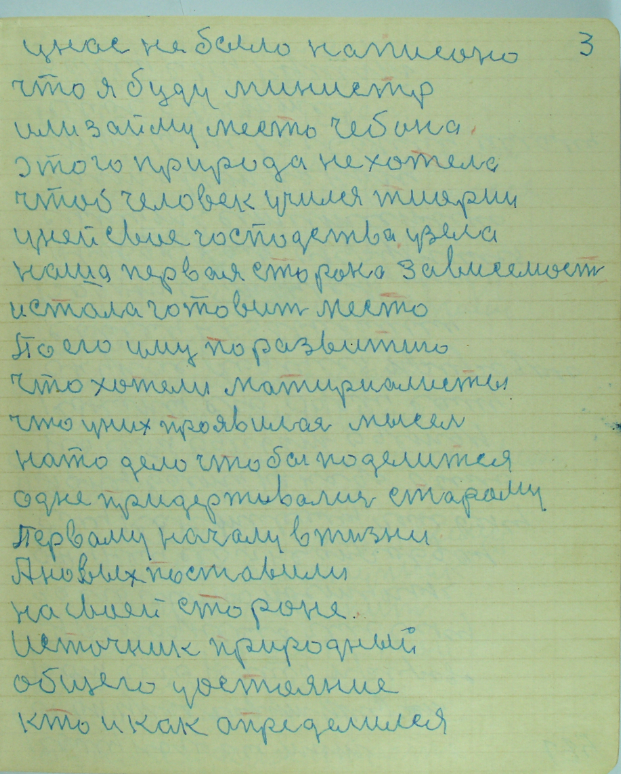 унас не было написоно 3
что я буду министр
или займу место чебона.
этого природа не хотела
чтоб человек учился тиории
иней свое господства, узела
наша первая сторона зависемост
истала готовит место
По его уму по развитию
что хотели матириалисты
что уних проявилая мысел
на то дело чтобы поделится
одне придерживалия старому
Первому началу в жизни.
А новых поставили
на своей стороне.
Источник природный
общего достояние
кто и как определился